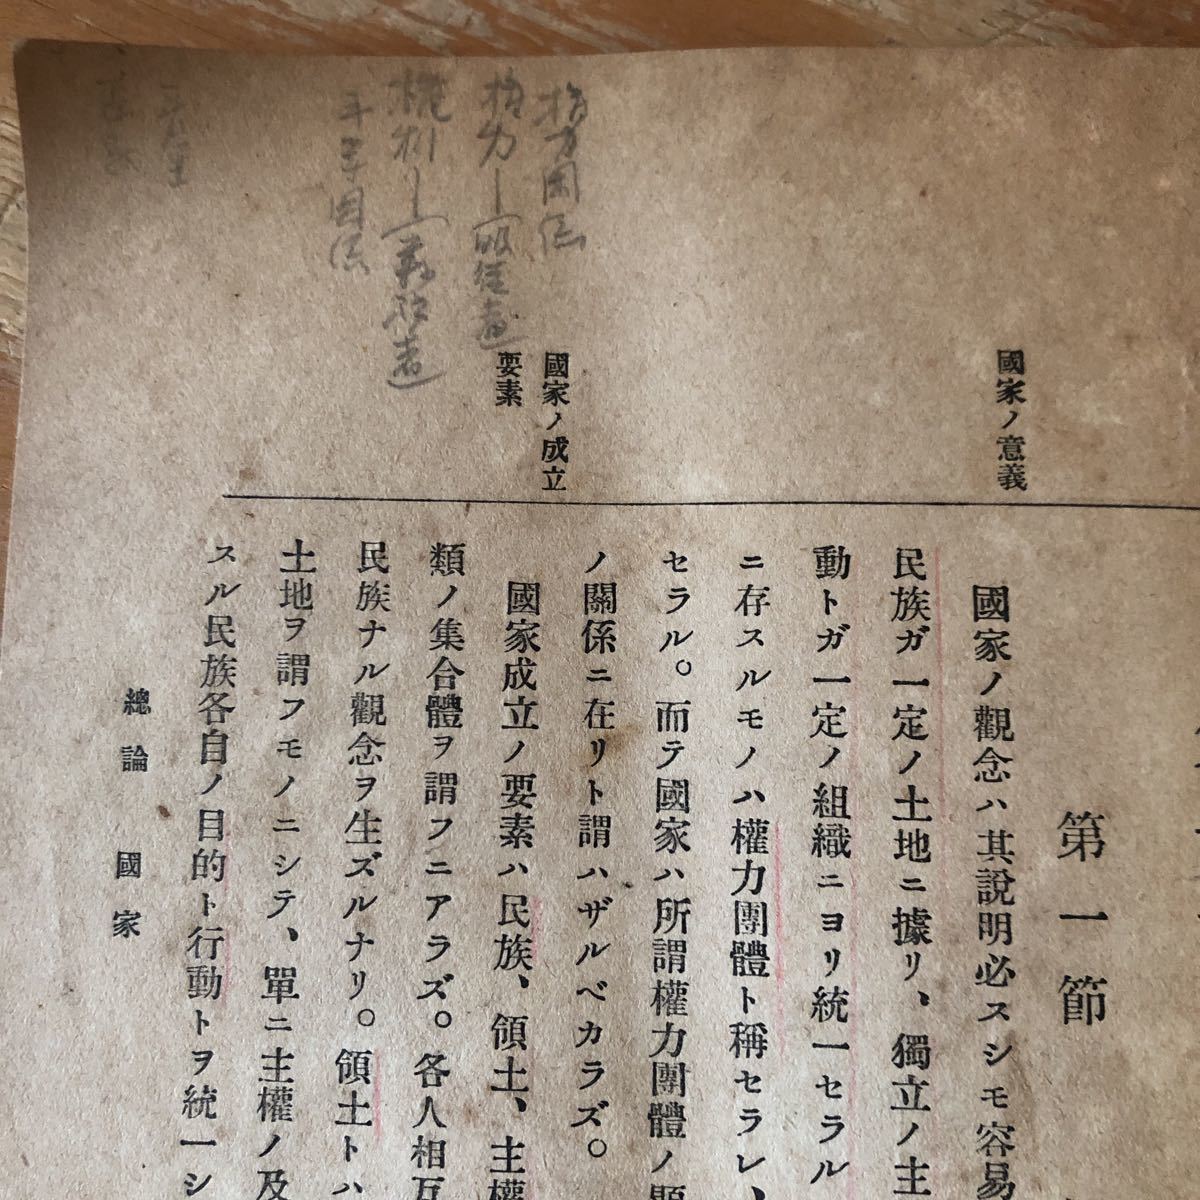 第一節
國家ノ意義
國家ノ觀念ハ其說明必スシモ容易
民族ガ一定ノ土地ニ據リ、獨立ノ主
動トガ一定ノ組織ニヨリ統一セラル
ニ存スルモノハ權力團體ト稱セラレ、
セラル。而テ國家ハ所謂權力團體ノ
ノ關係ニ在リト謂ハザルベカラズ。
國家ノ成立
要素
國家成立ノ要素ハ民族、領土、主權
類ノ集合體ヲ謂フニアラズ。各人相互
民族ナル觀念ヲ生ズルナリ。領土トハ
土地ヲ謂フモノニシテ、單ニ主權ノ及
スル民族各自ノ目的ト行動トヲ統一シ
總論 國家
权力関係
权力―(服従者)
権利―(義務者)
平等関係